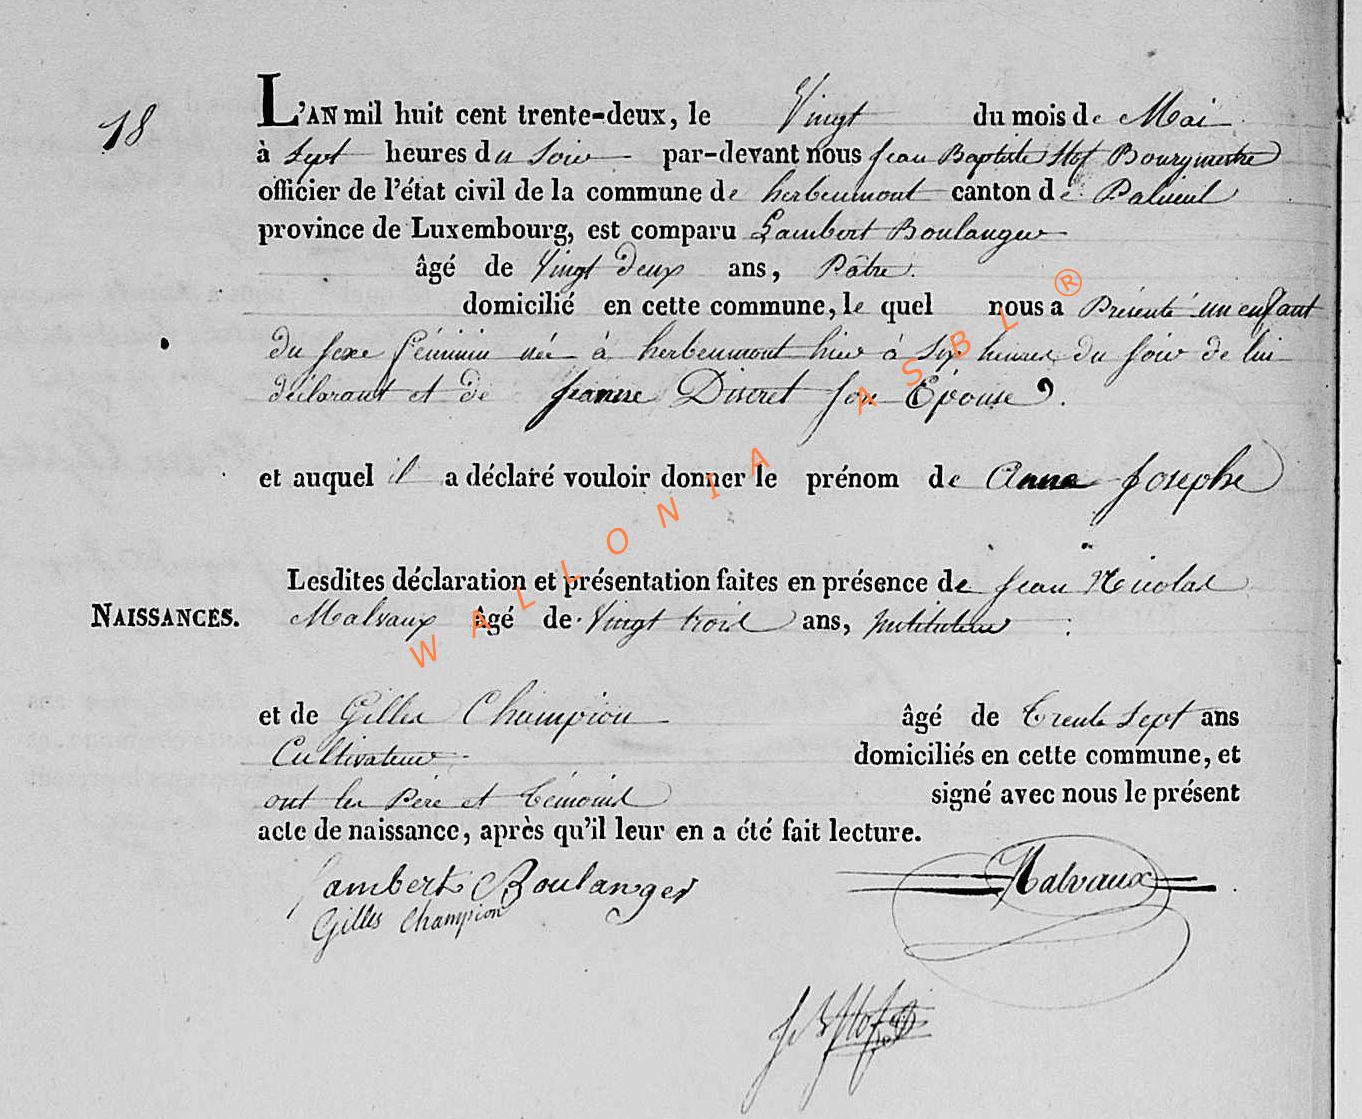 18
L'AN mil huit cent trente-deux, le Vingt du mois de Mai
à Sept heures du Soir par-devant nous Jean Baptiste Hof Bourgmestre
officier de l'état civil de la commune de herbeumont canton de Paliseul
province de Luxembourg, est comparu Lambert Boulanger
âgé de Vingt deux ans, Pâtre.
domicilié en cette commune, le quel nous a Présenté un enfant
du sexe féminin née à herbeumont hier à six heures du soir de lui
déclarant et de Jeanne Discret son Epouse.
et auquel il a déclaré vouloir donner le prénom de Anne Josephe
Lesdites déclaration et présentation faites en présence de Jean Nicolas
NAISSANCES. Malvaux âgé de Vingt trois ans, instituteur
et de Gilles Champion âgé de Trente Sept ans
Cultivateur domiciliés en cette commune, et
ont les Père et témoins signé avec nous le présent
acte de naissance, après qu'il leur en a été fait lecture.
Lambert Boulanger Malvaux
Gilles Champion
J B Hof
WALLONIA ASBL ®